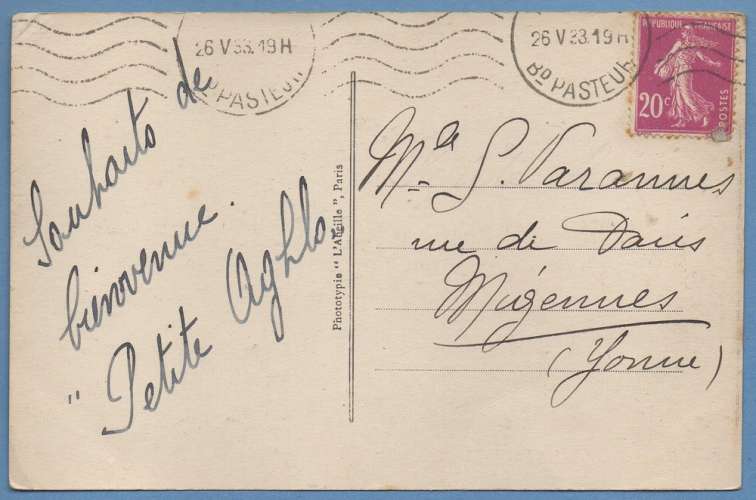 26 V 33.19H
Bᴰ PASTEUR
26 V 33.19H
Bᴰ PASTEUR
REPUBLIQUE FRANÇAISE
20c
POSTES
Souhaits de
bienvenue.
" Petite
Phototypie " L'Abeille ", Paris
Mlle S. Varannes
rue de Paris
Migennes
(Yonne)